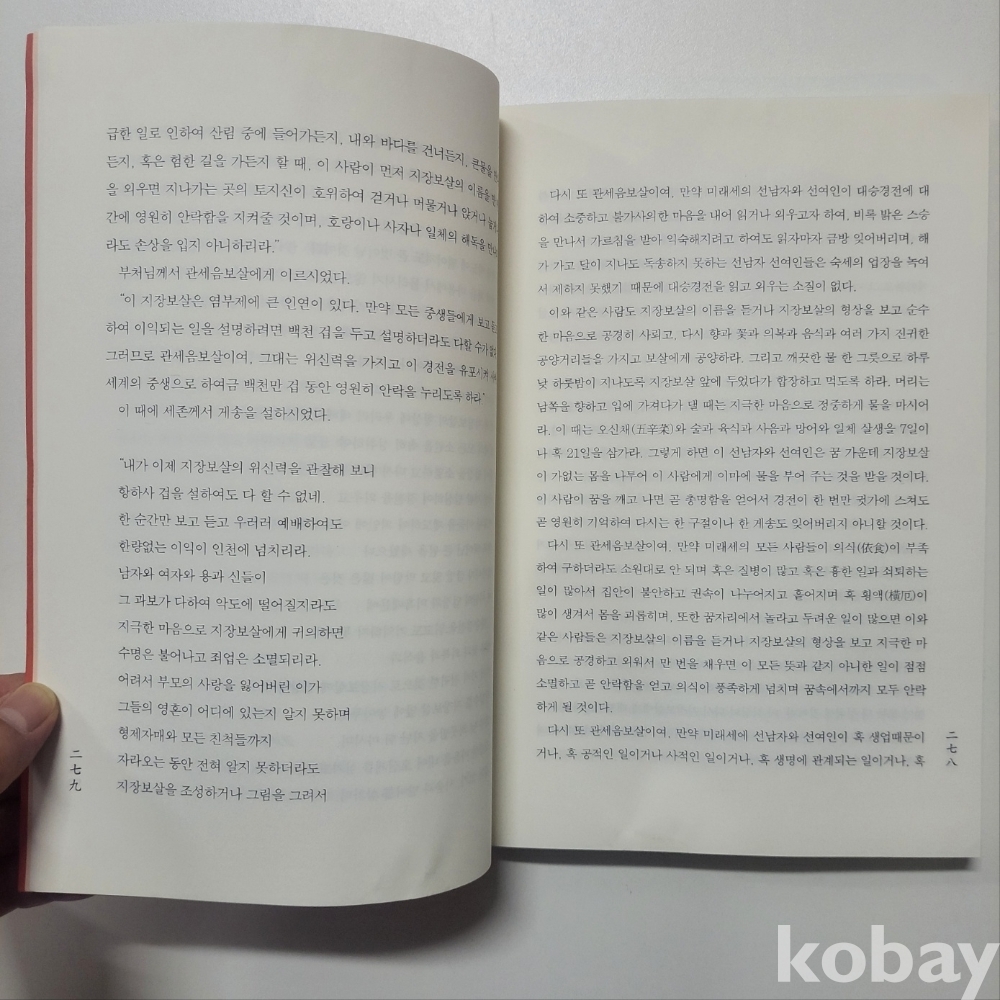 다시 또 관세음보살이여, 만약 미래세의 선남자와 선여인이 대승경전에 대
하여 소중하고 불가사의한 마음을 내어 읽거나 외우고자 하여, 비록 밝은 스승
을 만나서 가르침을 받아 익숙해지려고 하여도 읽자마자 금방 잊어버리며, 해
가 가고 달이 지나도 독송하지 못하는 선남자 선여인들은 숙세의 업장을 녹여
서 제하지 못했기 때문에 대승경전을 읽고 외우는 소질이 없다.
이와 같은 사람도 지장보살의 이름을 듣거나 지장보살의 형상을 보고 순수
한 마음으로 공경히 사뢰고, 다시 향과 꽃과 의복과 음식과 여러 가지 진귀한
공양거리들을 가지고 보살에게 공양하라. 그리고 깨끗한 물 한 그릇으로 하루
낮 하룻밤이 지나도록 지장보살 앞에 두었다가 합장하고 먹도록 하라. 머리는
남쪽을 향하고 입에 가져다가 댈 때는 지극한 마음으로 정중하게 물을 마시어
라. 이 때는 오신채(五辛菜)와 술과 육식과 사음과 망어와 일체 살생을 7일이
나 혹 21일을 삼가라. 그렇게 하면 이 선남자와 선여인은 꿈 가운데 지장보살
이 가없는 몸을 나투어 이 사람에게 이마에 물을 부어 주는 것을 받을 것이다.
이 사람이 꿈을 깨고 나면 곧 총명함을 얻어서 경전이 한 번만 귓가에 스쳐도
곧 영원히 기억하여 다시는 한 구절이나 한 게송도 잊어버리지 아니할 것이다.
다시 또 관세음보살이여, 만약 미래세의 모든 사람들이 의식(依食)이 부족
하여 구하더라도 소원대로 안 되며 혹은 질병이 많고 혹은 흉한 일과 쇠퇴하는
일이 많아서 집안이 불안하고 권속이 나누어지고 흩어지며 혹 횡액(橫厄)이
많이 생겨서 몸을 괴롭히며, 또한 꿈자리에서 놀라고 두려운 일이 많으면 이와
같은 사람들은 지장보살의 이름을 듣거나 지장보살의 형상을 보고 지극한 마
음으로 공경하고 외워서 만 번을 채우면 이 모든 뜻과 같지 아니한 일이 점점
소멸하고 곧 안락함을 얻고 의식이 풍족하게 넘치며 꿈속에서까지 모두 안락
하게 될 것이다.
다시 또 관세음보살이여, 만약 미래세에 선남자와 선여인이 혹 생업때문이
거나, 혹 공적인 일이거나 사적인 일이거나, 혹 생명에 관계되는 일이거나, 혹
二七八
급한 일로 인하여 산림 중에 들어가든지, 내와 바다를 건너든지, 큰물을
든지, 혹은 험한 길을 가든지 할 때, 이 사람이 먼저 지장보살의 이름을
을 외우면 지나가는 곳의 토지신이 호위하여 걷거나 머물거나 앉거나
간에 영원히 안락함을 지켜줄 것이며, 호랑이나 사자나 일체의 해독을
라도 손상을 입지 아니하리라.”
부처님께서 관세음보살에게 이르시었다.
“이 지장보살은 염부제에 큰 인연이 있다. 만약 모든 중생들에게 보고
하여 이익되는 일을 설명하려면 백천 겁을 두고 설명하더라도 다할 수가
그러므로 관세음보살이여, 그대는 위신력을 가지고 이 경전을 유포시켜
세계의 중생으로 하여금 백천만 겁 동안 영원히 안락을 누리도록 하라”
이 때에 세존께서 게송을 설하시었다.
“내가 이제 지장보살의 위신력을 관찰해 보니
항하사 겁을 설하여도 다 할 수 없네.
한 순간만 보고 듣고 우러러 예배하여도
한량없는 이익이 인천에 넘치리라.
남자와 여자와 용과 신들이
그 과보가 다하여 악도에 떨어질지라도
지극한 마음으로 지장보살에게 귀의하면
수명은 불어나고 죄업은 소멸되리라.
어려서 부모의 사랑을 잃어버린 이가
그들의 영혼이 어디에 있는지 알지 못하며
형제자매와 모든 친척들까지
자라오는 동안 전혀 알지 못하더라도
지장보살을 조성하거나 그림을 그려서
二七九
kobay